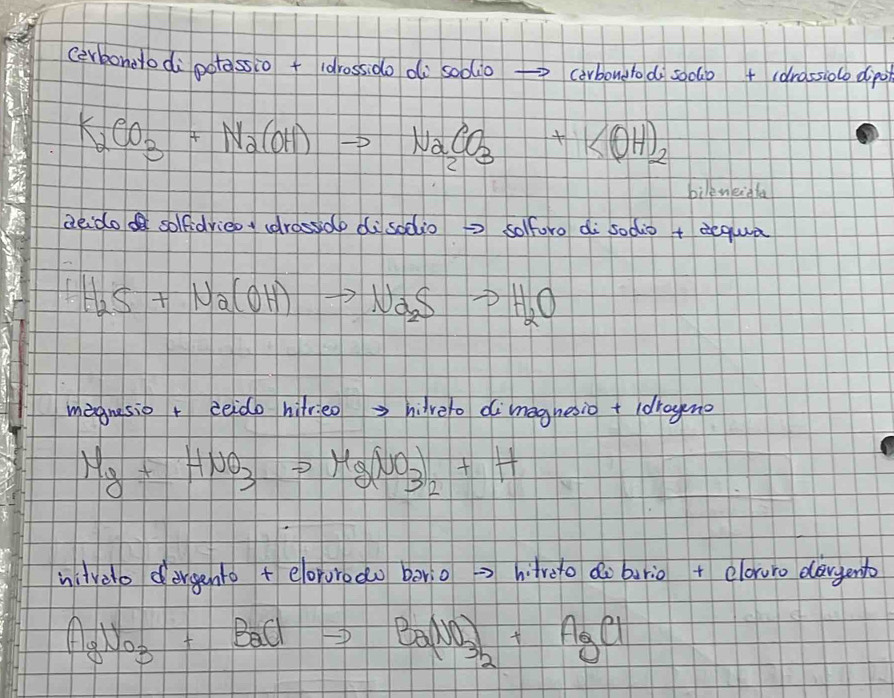 carbonato di potassio + idrossido di sodio → carbonato di sodio + idrossido di pot
K₂CO₃ + Na(OH) → Na₂CO₃ + K(OH)₂
bilanciata
acido solfidrico + idrossido di sodio → solfuro di sodio + acqua
H₂S + Na(OH) → Na₂S → H₂O
magnesio + acido nitrico → nitrato di magnesio + idrogeno
Mg + HNO₃ → Mg(NO₃)₂ + H
nitrato d'argento + cloruro di bario → nitrato di bario + cloruro d'argento
AgNO₃ + BaCl → Ba(NO₃)₂ + AgCl